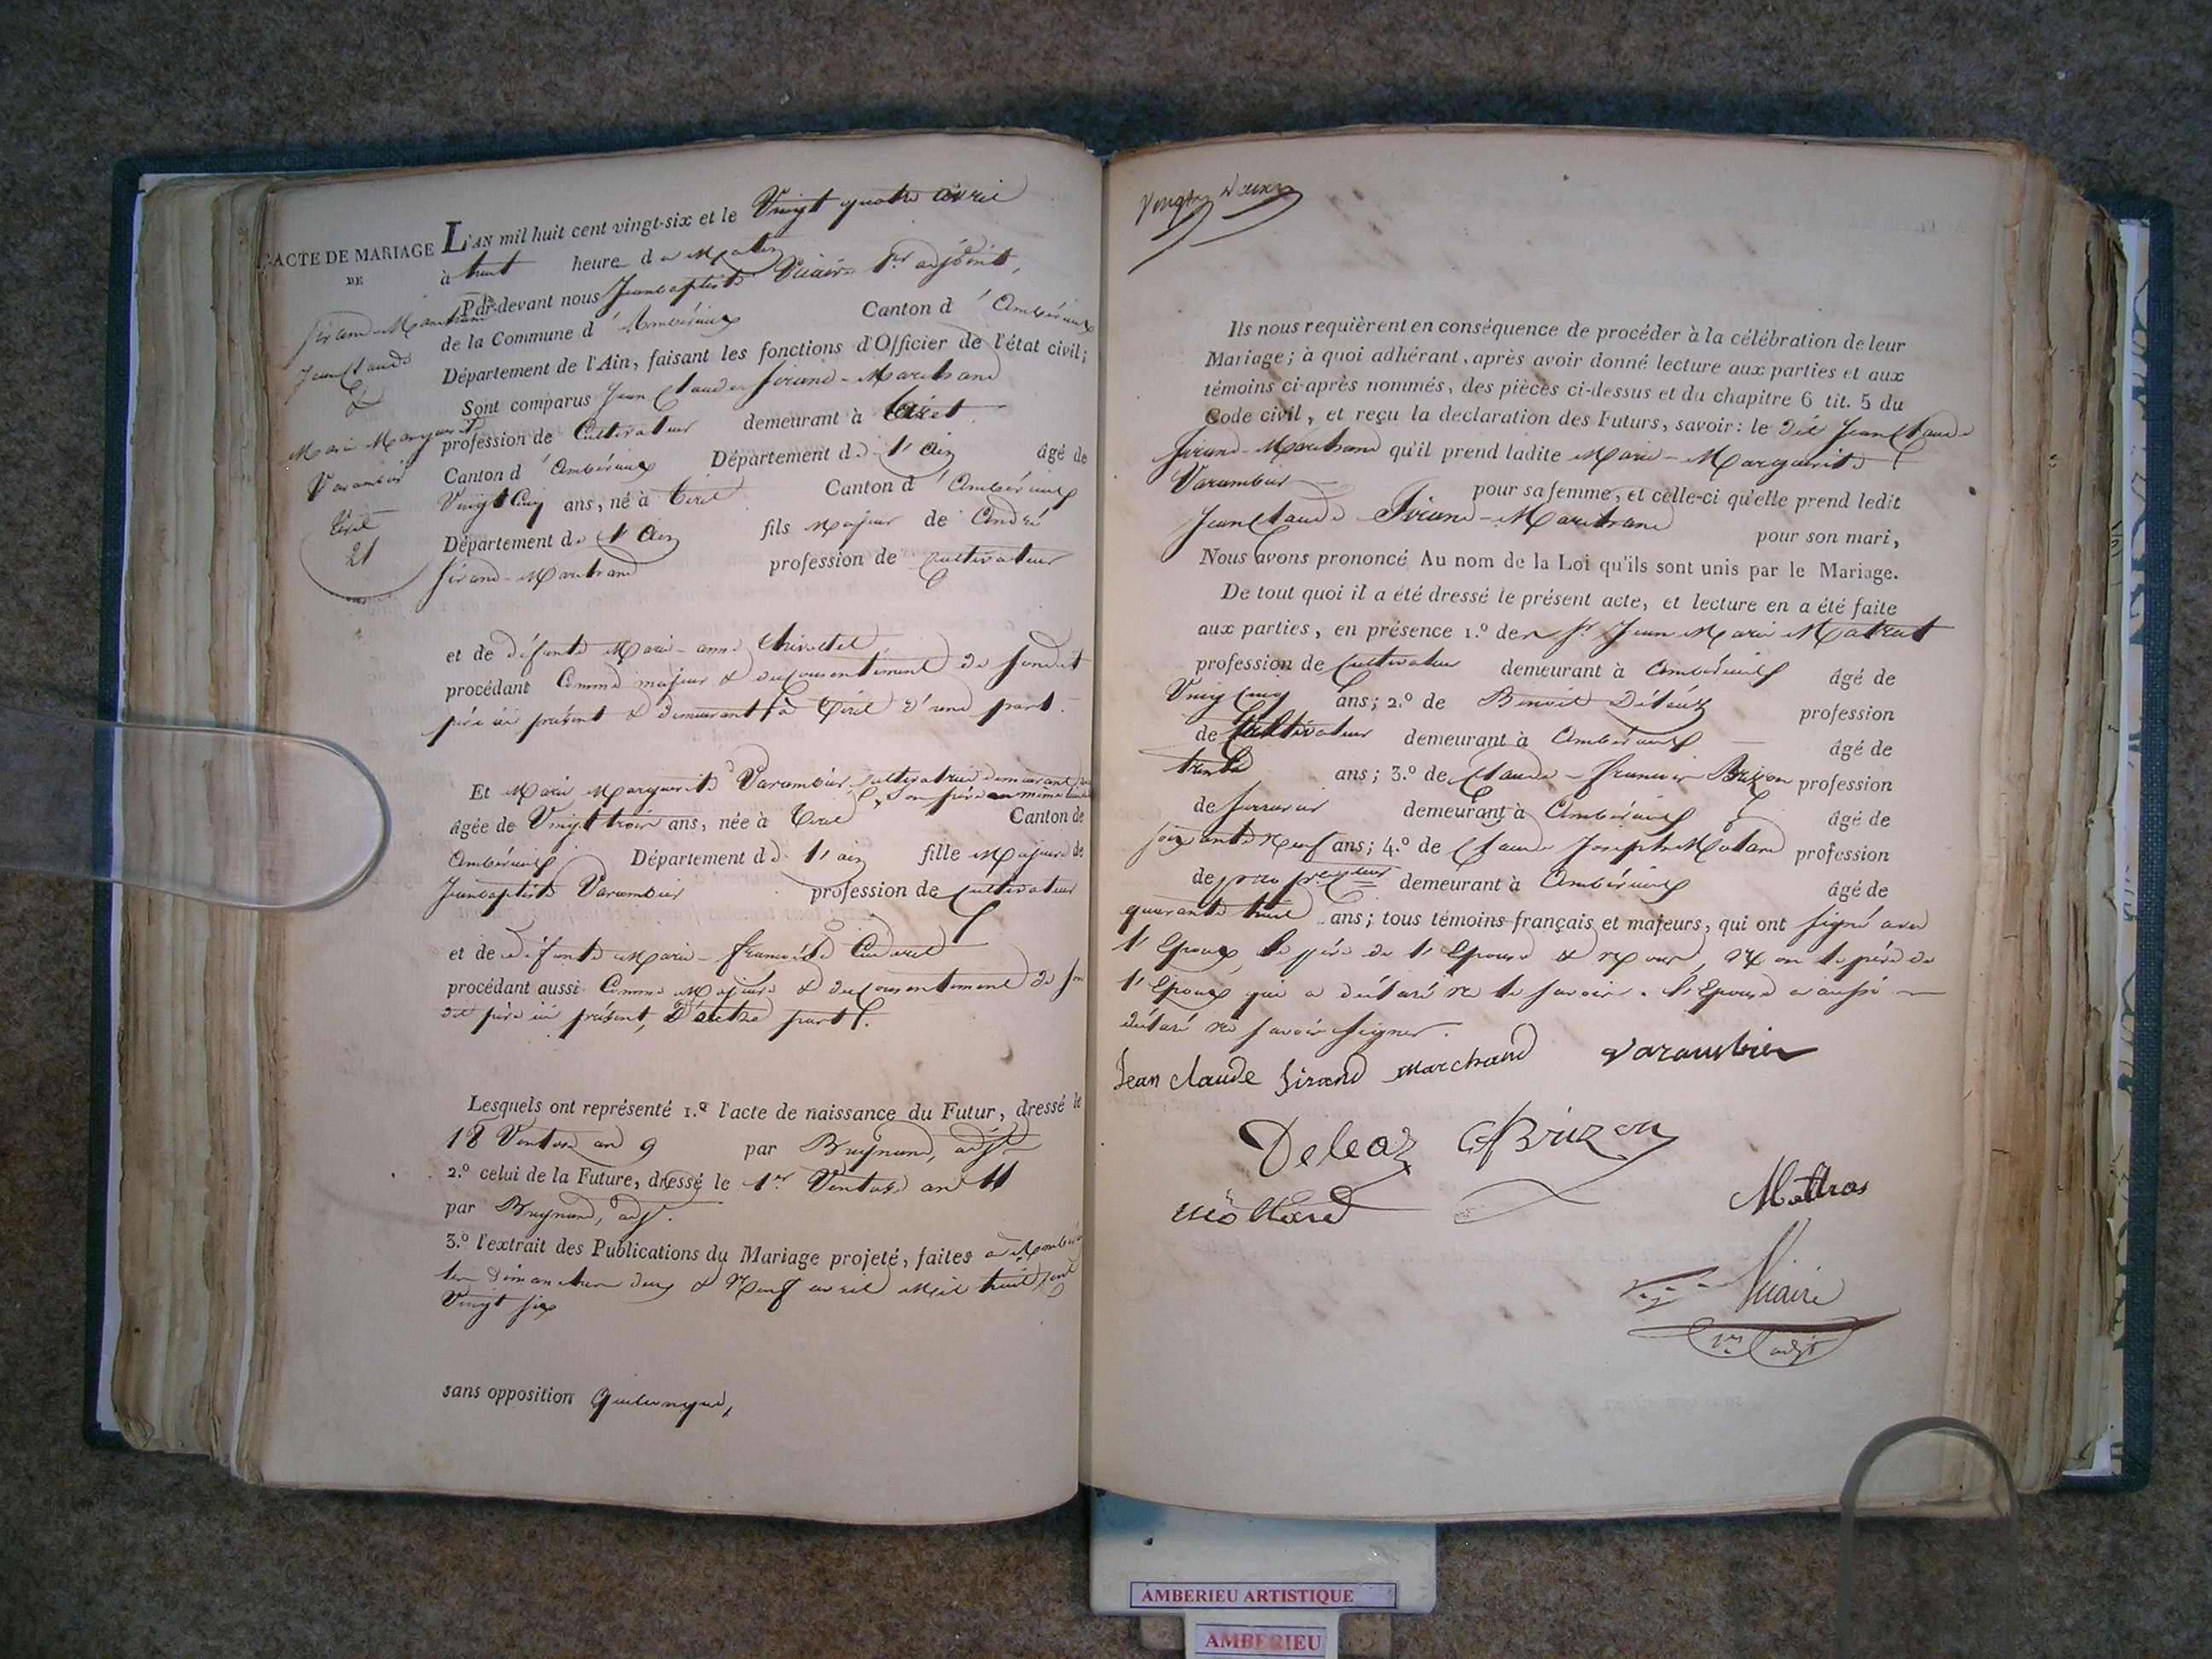 ACTE DE MARIAGE
DE
Sirand-Marchand
Jean Claude
&
Marie Marguerite
Varambier
Tiret
21
L'AN mil huit cent vingt-six et le Vingt quatre avril
à huit heure du Matin
Par-devant nous Jeanbaptiste Vicaire 1er adjoint,
de la Commune d'Ambérieux Canton d'Ambérieux
Département de l'Ain, faisant les fonctions d'Officier de l'état civil;
Sont comparus Jean Claude Sirand-Marchand
profession de Cultivateur demeurant à Tiret
Canton d'Ambérieux Département de l'Ain âgé de
Vingt Cinq ans, né à Tiret Canton d'Ambérieux
Département de l'Ain fils Majeur de André
Sirand-Marchand profession de Cultivateur
et de défunte Marie-anne
procédant Comme majeur & du consentement de sondit
père ici présent & demeurant à Tiret d'une part.
Et Marie Marguerite Varambier, Cultivatrice demeurant
son père au même
âgée de Vingt trois ans, née à Tiret Canton de
Ambérieux Département de l'ain fille Majeure de
Jeanbaptiste Varambier profession de Cultivateur
et de défunte Marie-françoise
procédant aussi Comme Majeure & du consentement de son
dit père ici présent, D'autre part.
Lesquels ont représenté 1.º l'acte de naissance du Futur, dressé le
18 Ventose an 9 par Bruynand, adjt
2.º celui de la Future, dressé le 1er Ventose an 11
par Bruynand, adjt.
3.º l'extrait des Publications du Mariage projeté, faites à
les Dimanches deux & Neuf avril Mil huit cent
Vingt six
sans opposition Quelconque,
Ils nous requièrent en conséquence de procéder à la célébration de leur
Mariage; à quoi adhérant, après avoir donné lecture aux parties et aux
témoins ci-après nommés, des pièces ci-dessus et du chapitre 6 tit. 5 du
Code civil, et reçu la declaration des Futurs, savoir: le dit Jean Claude
Sirand-Marchand qu'il prend ladite Marie-Marguerite
Varambier pour sa femme, et celle-ci qu'elle prend ledit
Jean Claude Sirand-Marchand pour son mari,
Nous avons prononcé Au nom de la Loi qu'ils sont unis par le Mariage.
De tout quoi il a été dressé le présent acte, et lecture en a été faite
aux parties, en présence 1.º de Sr Jean Marie Matrat
profession de Cultivateur demeurant à Ambérieux âgé de
Vingt Cinq ans; 2.º de Benoit Déléaz profession
de Cultivateur demeurant à Ambérieux âgé de
trente ans; 3.º de Claude-françois Brizon profession
de Serrurier demeurant à Ambérieux âgé de
soixante neuf ans; 4.º de Claude Joseph Motard profession
de demeurant à Ambérieux âgé de
quarante huit ans; tous témoins français et majeurs, qui ont signé avec
l'Epoux, le père de l'Epouse & Nous, Non le père de
l'Epoux qui a déclaré ne le savoir. l'Epouse a aussi
déclaré ne savoir signer.
Jean claude Sirand marchand varambier
Deleaz CfBrizon
mottard
Mattras
Vicaire
1er adjt
AMBERIEU ARTISTIQUE
AMBERIEU